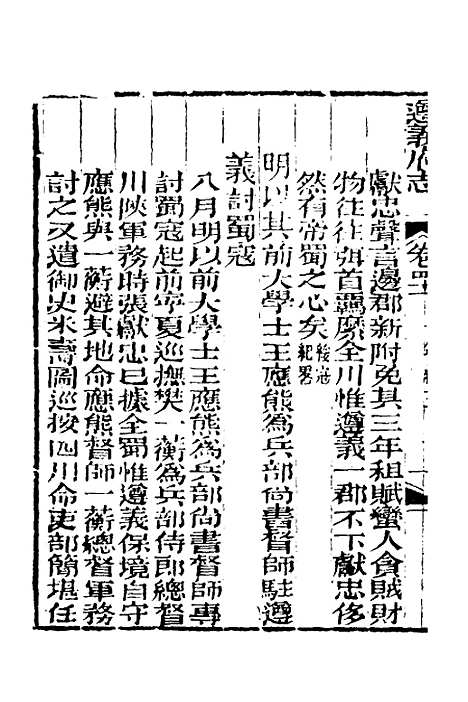 遵義府志 卷四十
獻忠聲言邊郡新附免其三年租賦蠻人貪賊財
物往往弭首羈縻全川惟遵義一郡不下獻忠侈
然有帝蜀之心矣綏寇紀畧
明以其前大學士王應熊為兵部尚書督師駐遵
義討蜀寇
八月明以前大學士王應熊為兵部尚書督師專
討蜀寇起前寧夏巡撫樊一蘅為兵部侍郎總督
川陜軍務時張獻忠已據全蜀惟遵義保境自守
應熊與一蘅避其地命應熊督師一蘅總督軍務
討之又遣御史米壽圖巡按四川命吏部簡堪任